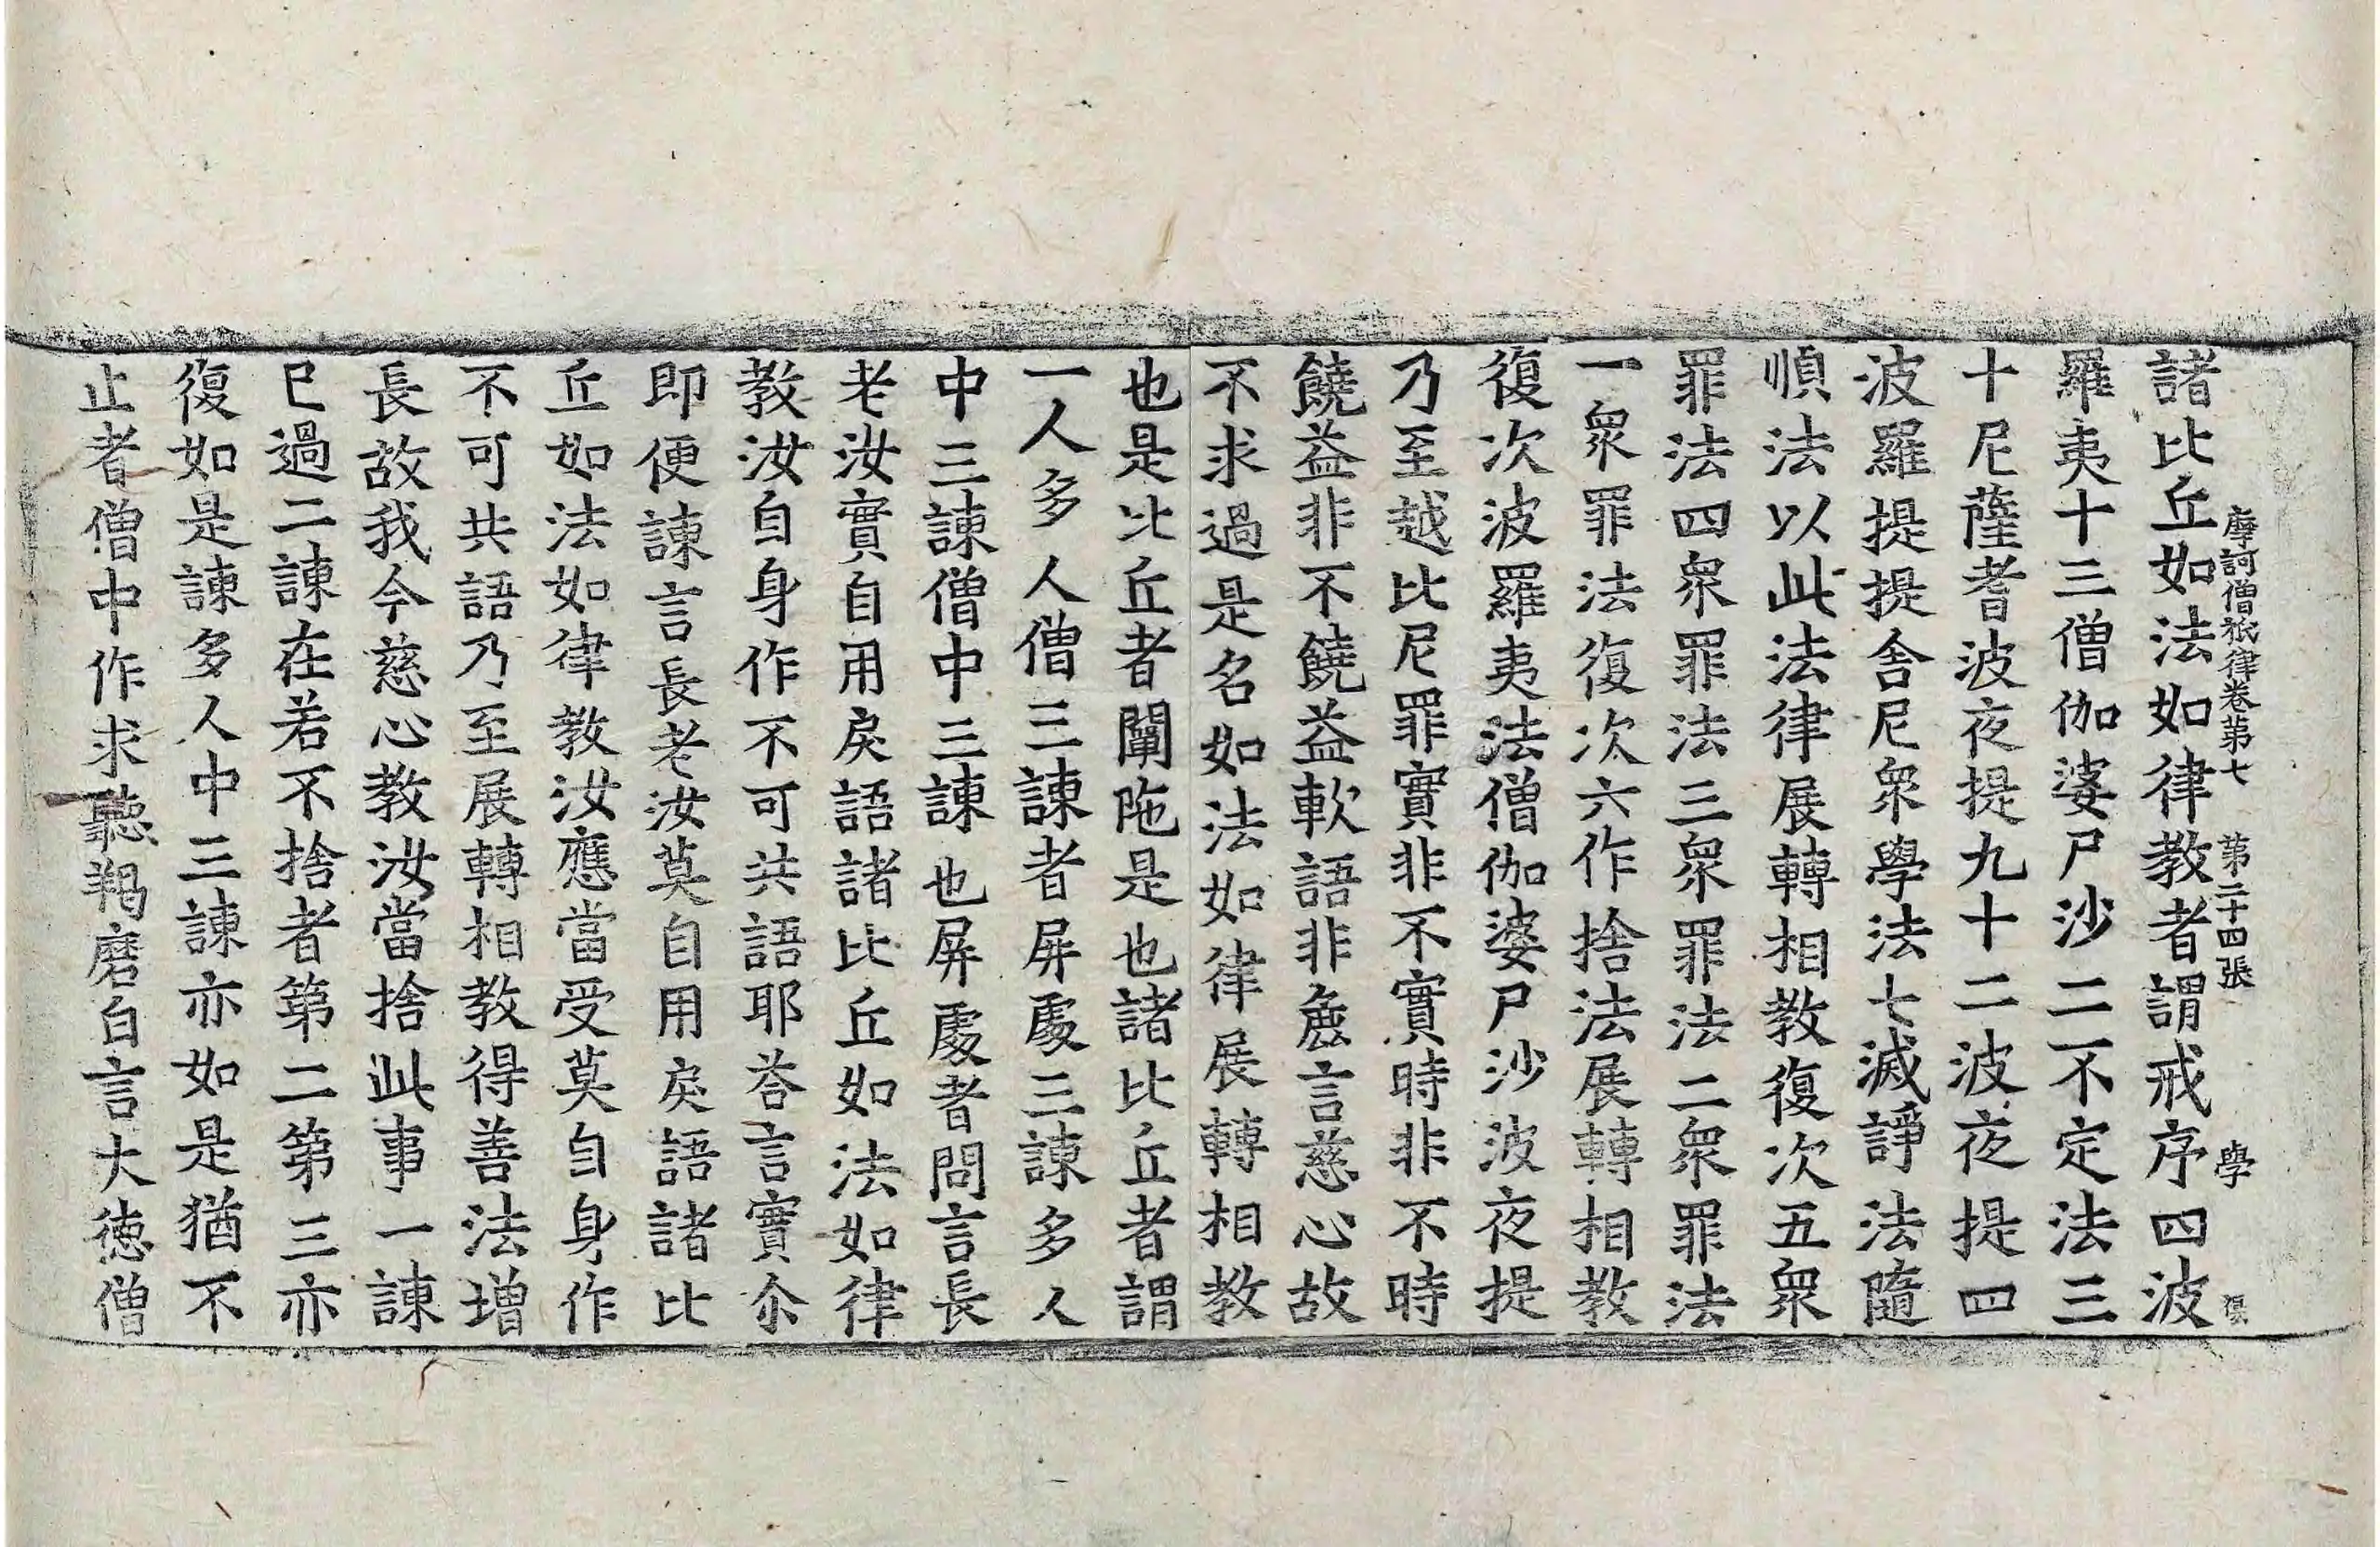 摩訶僧祇律卷第七 第二十四張 學
諸比丘如法如律教者謂戒序四波
羅夷十三僧伽婆尸沙二不定法三
十尼薩耆波夜提九十二波夜提四
波羅提提舍尼衆學法七滅諍法隨
順法以此法律展轉相教復次五衆
罪法四衆罪法三衆罪法二衆罪法
一衆罪法復次六作捨法展轉相教
復次波羅夷法僧伽婆尸沙波夜提
乃至越比尼罪實非不實時非不時
饒益非不饒益軟語非麁言慈心故
不求過是名如法如律展轉相教
也是比丘者闡陁是也諸比丘者謂
一人多人僧三諫者屏處三諫多人
中三諫僧中三諫也屏處者問言長
老汝實自用戾語諸比丘如法如律
教汝自身作不可共語耶荅言實尒
即便諫言長老汝莫自用戾語諸比
丘如法如律教汝應當受莫自身作
不可共語乃至展轉相教得善法增
長故我今慈心教汝當捨此事一諫
已過二諫在若不捨者第二第三亦
復如是諫多人中三諫亦如是猶不
止者僧中作求聽羯磨白言大德僧